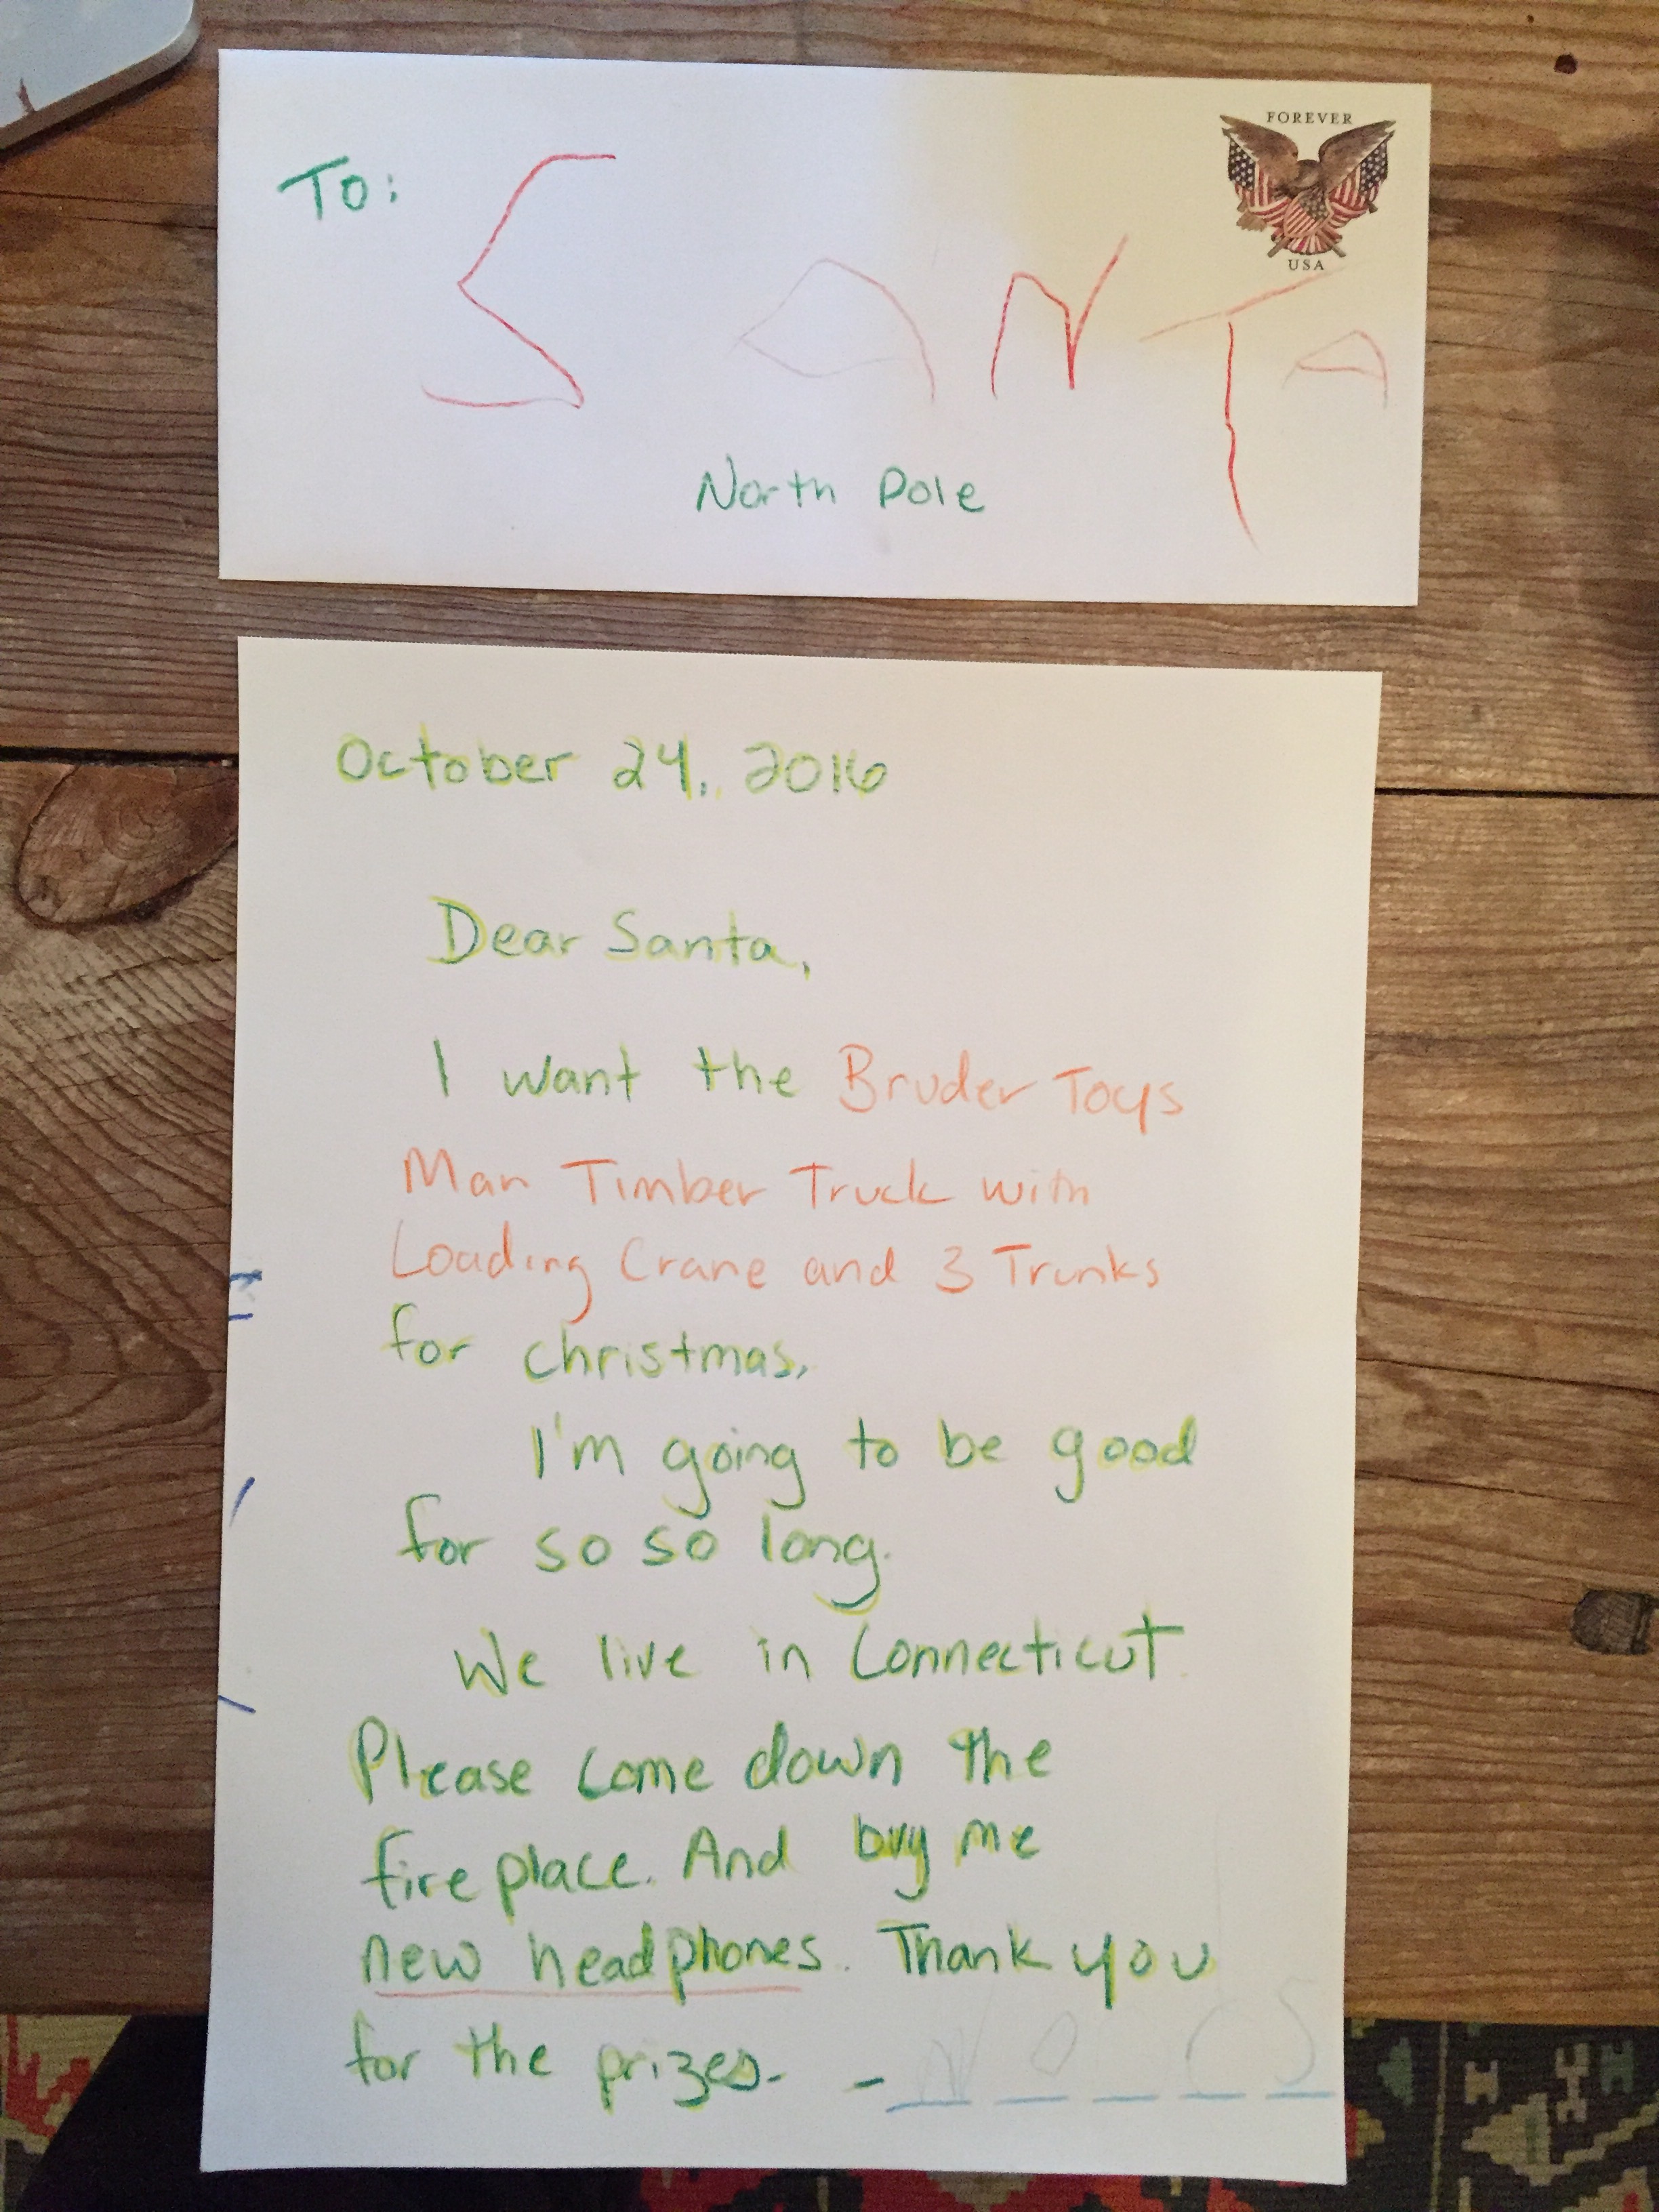 To:
FOREVER
SANTA
USA
North Pole
October 24, 2016
Dear Santa,
I want the Bruder Toys
Man Timber Truck with
Loading Crane and 3 Trunks
for christmas.
I'm going to be good
for so so long.
We live in Connecticut.
Please come down the
fire place. And buy me
new headphones. Thank you
for the prizes. -